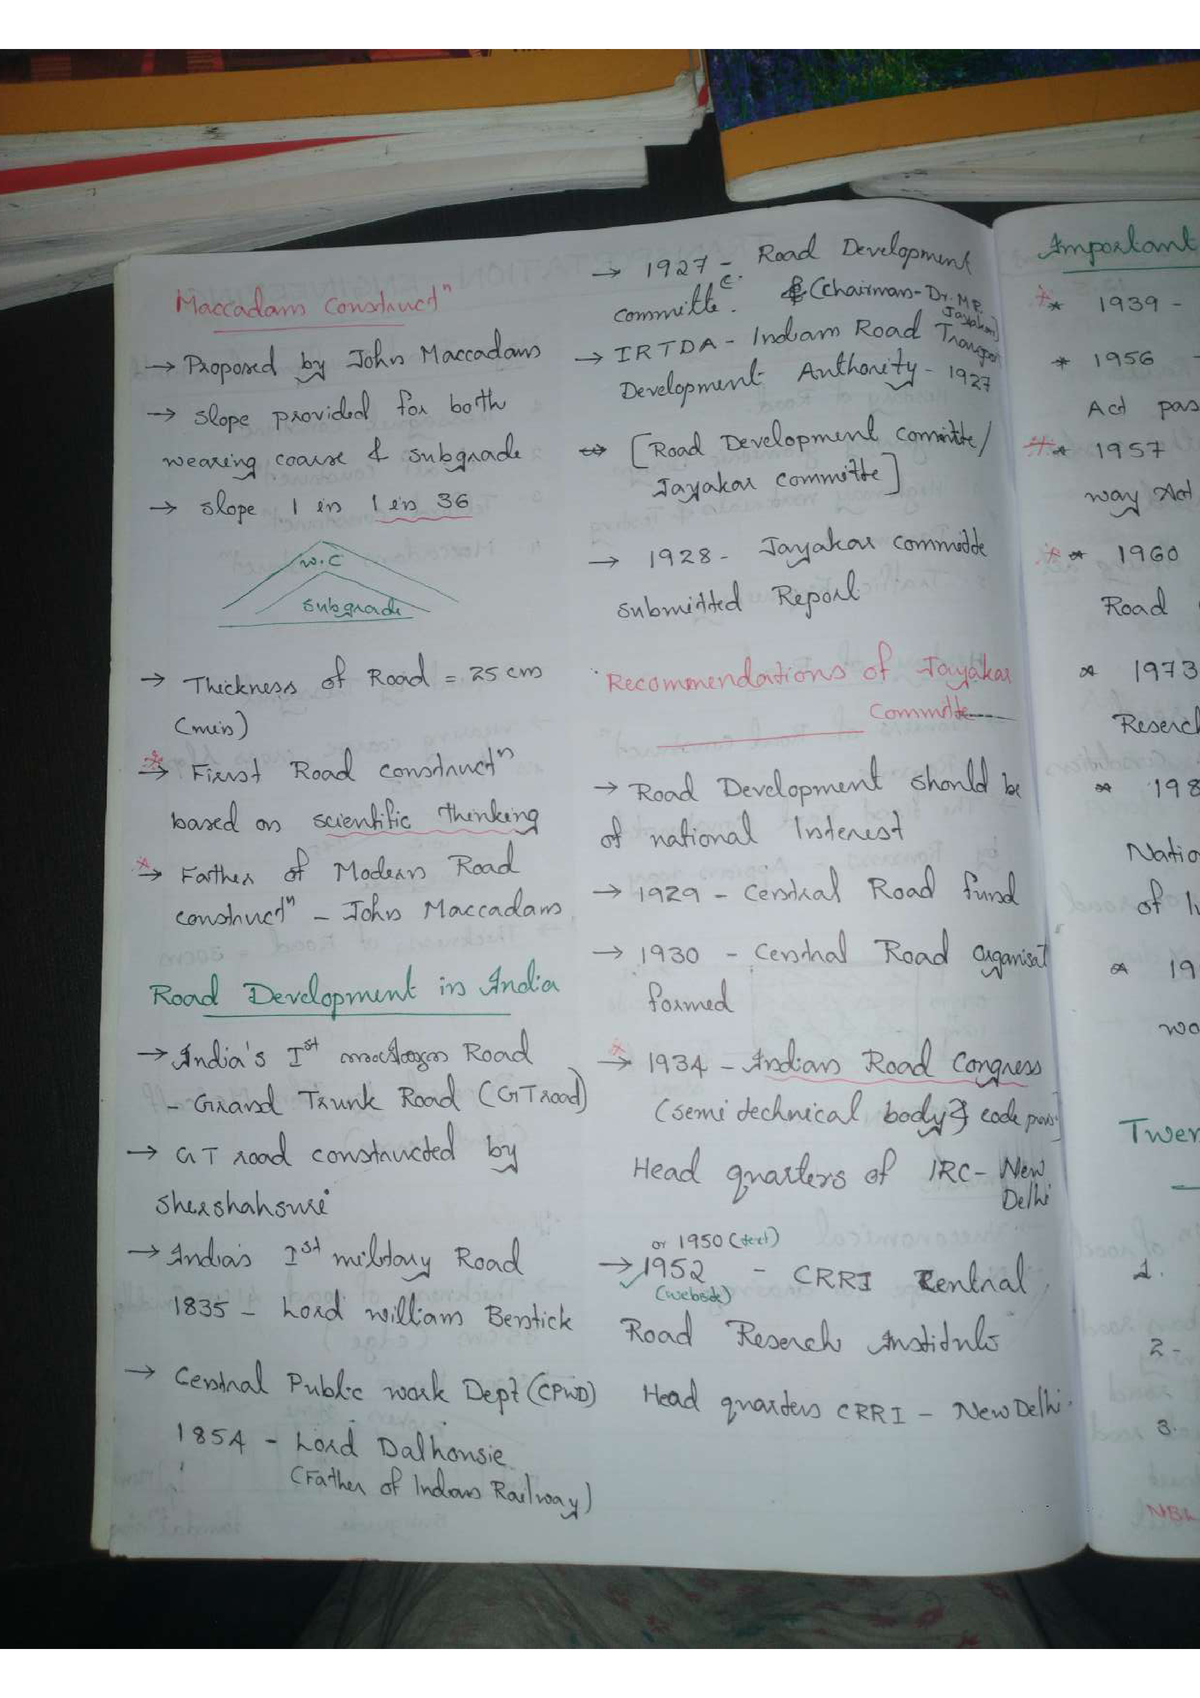 Maccadam Constructⁿ
→ Proposed by John Maccadam
→ Slope provided for both
wearing coarse & subgrade
→ slope 1 in 1 in 36
W.C
Subgrade
→ Thickness of Road = 25 cm
(min)
→ First Road constructⁿ
based on scientific thinking
→ Father of Modern Road
constructⁿ - John Maccadam
Road Development in India
→ India's Iˢᵗ Road
- Grand Trunk Road (GT road)
→ GT road constructed by
Shershahsuri
→ India's Iˢᵗ military Road
1835 - Lord william Bentick
→ Central Public work Dept (CPWD)
1854 - Lord Dalhousie
(Father of Indian Railway)
→ 1927 - Road Development
committe. (Chairman - Dr. M.R.
Jayakar)
→ IRTDA - Indian Road Transport
Development Authority - 1927
[Road Development committe/
Jayakar committe]
→ 1928 - Jayakar committe
submitted Report
Recommendations of Jayakar
Committe
→ Road Development should be
of national Interest
→ 1929 - Central Road fund
→ 1930 - Central Road Organisat
formed
→ 1934 - Indian Road Congress
(semi technical body & code
Head quarters of IRC - New
Delhi
or 1950 (text)
→ 1952 - CRRI Central
(website)
Road Reserch Institute
Head quarters CRRI - New Delhi.
Important
* 1939 -
* 1956 -
Act pas
* 1957
way Act
* 1960
Road
* 1973
Reserch
* 198
Natio
of
* 19
wo
Twen
1.
2 -
3.